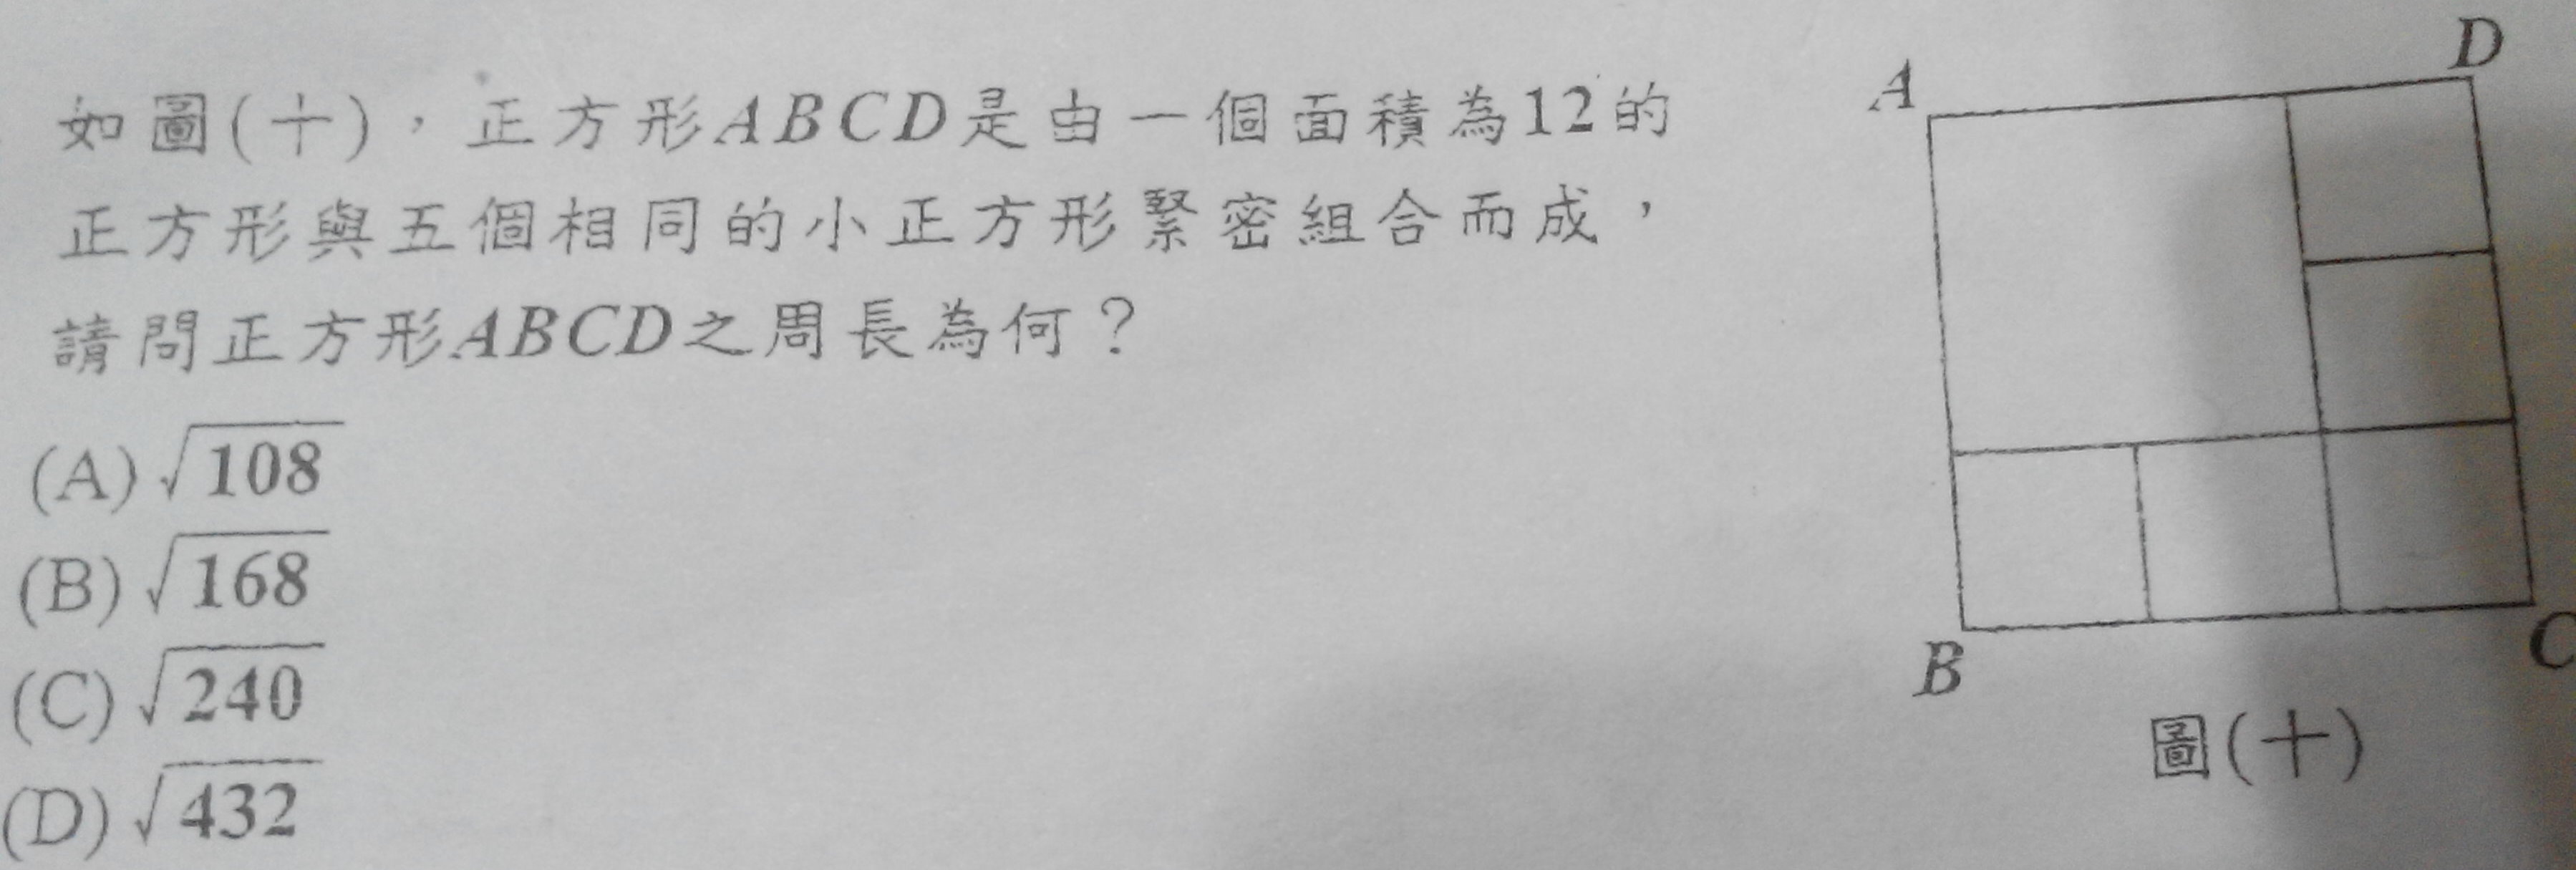 如圖(十)，正方形ABCD是由一個面積為12的
正方形與五個相同的小正方形緊密組合而成，
請問正方形ABCD之周長為何？
(A) √108
(B) √168
(C) √240
(D) √432
A
D
B
C
圖(十)